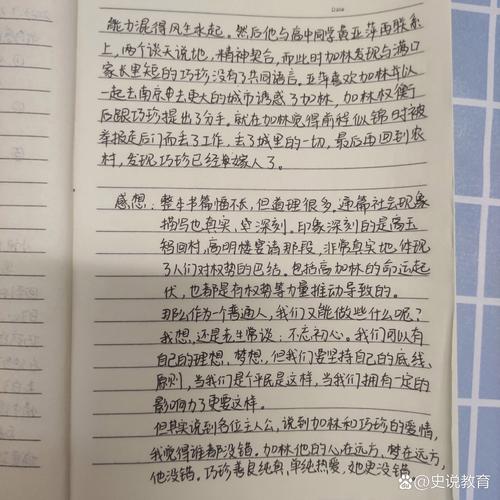 Date
能力混得风生水起。然后他与高中同学黄亚萍再联系
上，两个谈天说地，精神契合，而此时加林发现与满口
家长里短的巧珍没有了共同语言。亚萍喜欢加林并以
一起去南京更大的城市诱惑了加林，加林权衡
后跟巧珍提出了分手。就在加林觉得前程似锦时被
举报走后门而丢了工作，丢了城里的一切，最后再回到农
村，发现巧珍已经嫁人了。
感想：整本书篇幅不长，但道理很多。通篇社会现象
描写也真实、深刻。印象深刻的是高玉
智回村，高明楼宴请那段，非常真实地体现
了人们对权势的巴结。包括高加林的命运起
伏，也都是有权势等力量推动导致的。
那么作为一个普通人，我们又能做些什么呢？
我想，还是老生常谈：不忘初心。我们可以有
自己的理想、梦想，但我们要坚持自己的底线、
原则，当我们是个平民是这样，当我们拥有一定的
影响力了更要这样。
但其实说到各位主人公，说到加林和巧珍的爱情，
我觉得谁都没错。加林他的心在远方，梦在远方，
他没错，巧珍善良纯真，单纯热爱，她更没错
史说教育